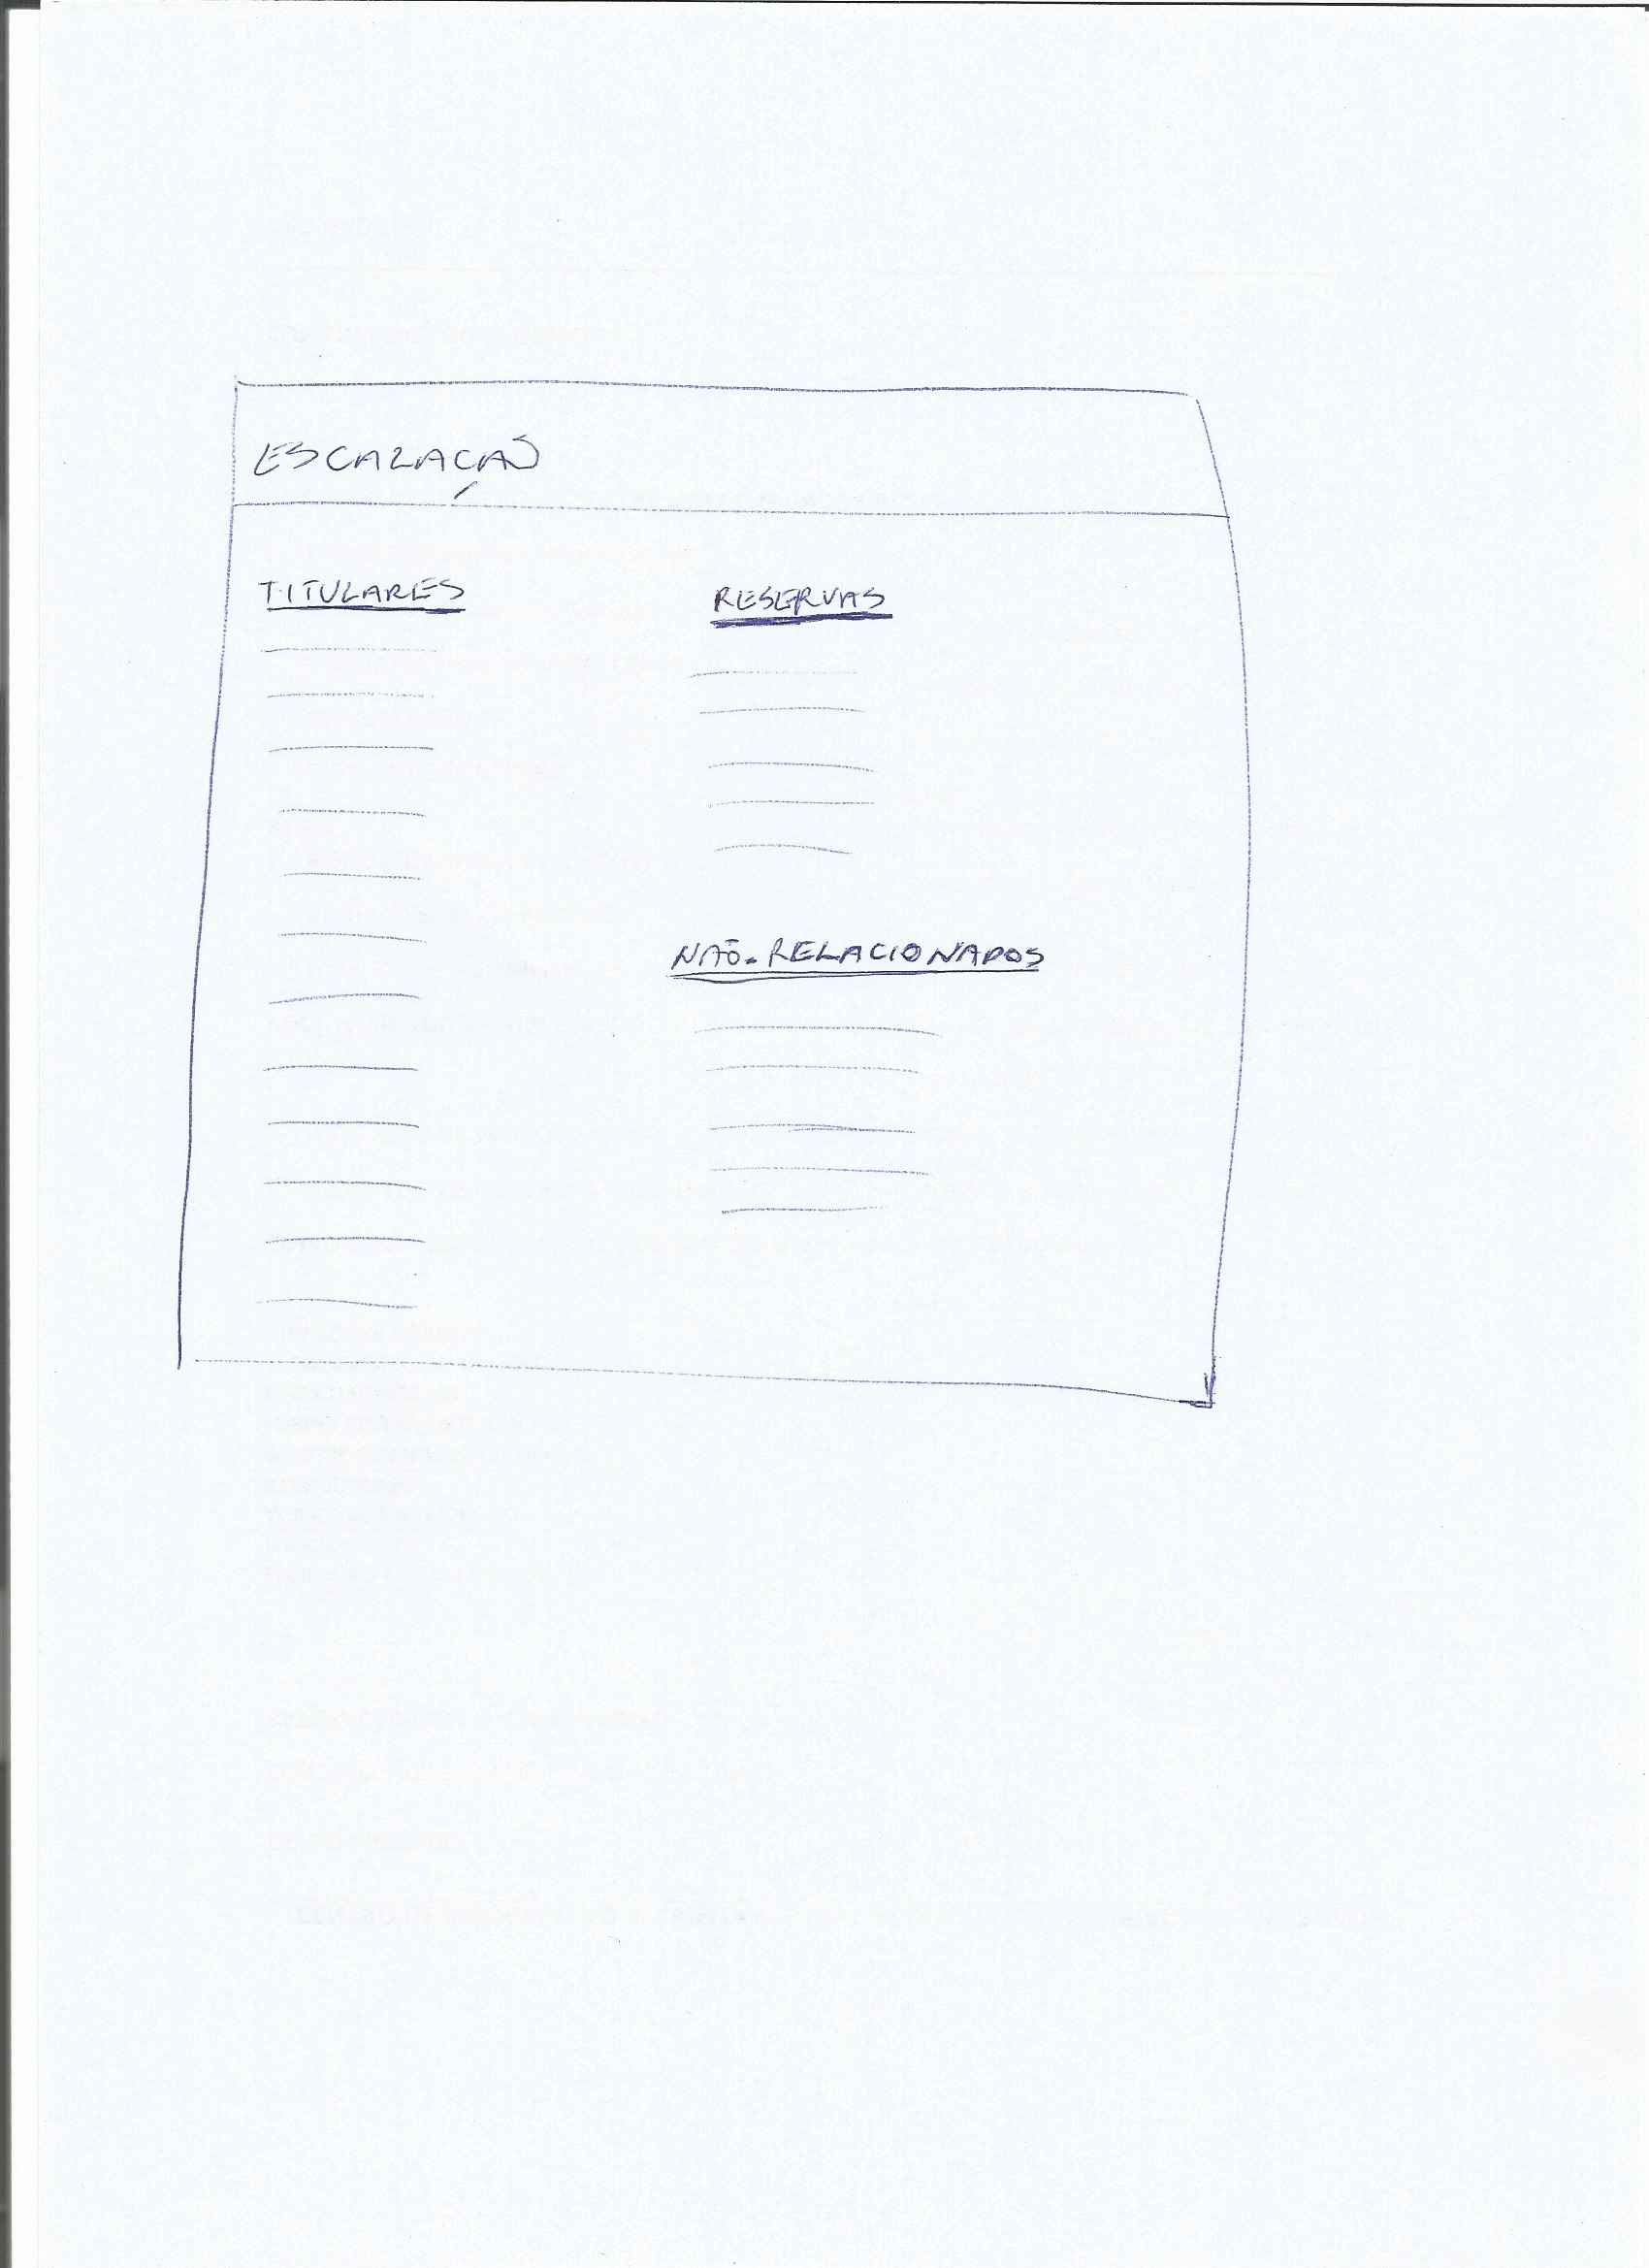 ESCALAÇÃO
TITULARES
RESERVAS
NÃO-RELACIONADOS